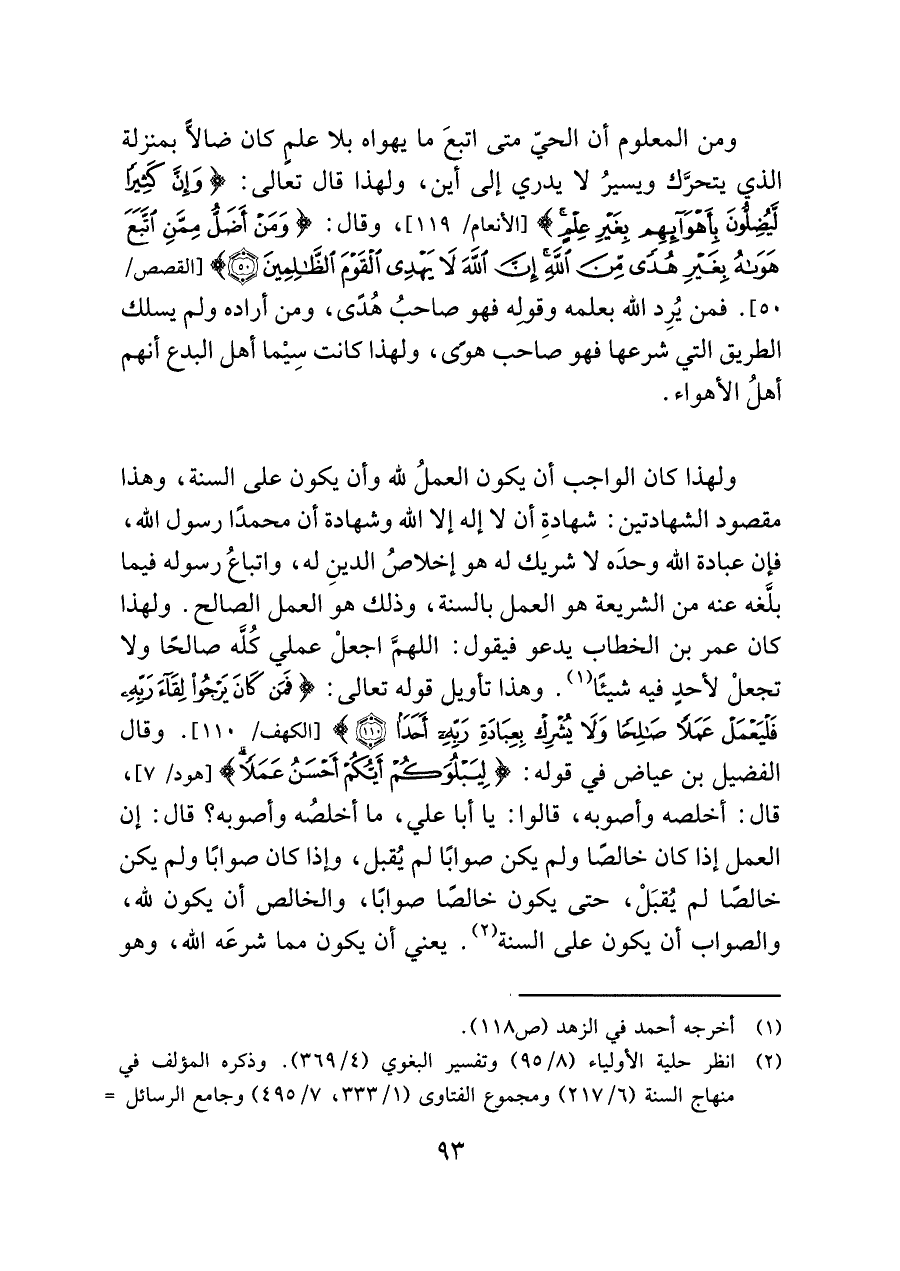 ومن المعلوم أن الحيّ متى اتبعَ ما يهواه بلا علمٍ كان ضالاًّ بمنزلة
الذي يتحرَّك ويسيرُ لا يدري إلى أين، ولهذا قال تعالى: ﴿وَإِنَّ كَثِيرًا
لَّيُضِلُّونَ بِأَهْوَآئِهِم بِغَيْرِ عِلْمٍ﴾ [الأنعام/ ١١٩]، وقال: ﴿وَمَنْ أَضَلُّ مِمَّنِ ٱتَّبَعَ
هَوَىٰهُ بِغَيْرِ هُدًى مِّنَ ٱللَّهِ إِنَّ ٱللَّهَ لَا يَهْدِى ٱلْقَوْمَ ٱلظَّـٰلِمِينَ ٥٠﴾ [القصص/
٥٠]. فمن يُرِد الله بعلمه وقولِه فهو صاحبُ هُدًى، ومن أراده ولم يسلك
الطريق التي شرعها فهو صاحب هوًى، ولهذا كانت سِيْما أهل البدع أنهم
أهلُ الأهواء.
ولهذا كان الواجب أن يكون العملُ لله وأن يكون على السنة، وهذا
مقصود الشهادتين: شهادةِ أن لا إله إلا الله وشهادة أن محمدًا رسول الله،
فإن عبادة الله وحدَه لا شريك له هو إخلاصُ الدينِ له، واتباعُ رسوله فيما
بلَّغه عنه من الشريعة هو العمل بالسنة، وذلك هو العمل الصالح. ولهذا
كان عمر بن الخطاب يدعو فيقول: اللهمَّ اجعلْ عملي كُلَّه صالحًا ولا
تجعلْ لأحدٍ فيه شيئًا(١). وهذا تأويل قوله تعالى: ﴿فَمَن كَانَ يَرْجُوا۟ لِقَآءَ رَبِّهِۦ
فَلْيَعْمَلْ عَمَلًا صَـٰلِحًا وَلَا يُشْرِكْ بِعِبَادَةِ رَبِّهِۦٓ أَحَدًۢا ١١٠﴾ [الكهف/ ١١٠]. وقال
الفضيل بن عياض في قوله: ﴿لِيَبْلُوَكُمْ أَيُّكُمْ أَحْسَنُ عَمَلًا﴾ [هود/ ٧]،
قال: أخلصه وأصوبه، قالوا: يا أبا علي، ما أخلصُه وأصوبه؟ قال: إن
العمل إذا كان خالصًا ولم يكن صوابًا لم يُقبل، وإذا كان صوابًا ولم يكن
خالصًا لم يُقبَلْ، حتى يكون خالصًا صوابًا، والخالص أن يكون لله،
والصواب أن يكون على السنة(٢). يعني أن يكون مما شرعَه الله، وهو
(١) أخرجه أحمد في الزهد (ص١١٨).
(٢) انظر حلية الأولياء (٨/ ٩٥) وتفسير البغوي (٤/ ٣٦٩). وذكره المؤلف في
منهاج السنة (٦/ ٢١٧) ومجموع الفتاوى (١/ ٣٣٣، ٧/ ٤٩٥) وجامع الرسائل =
٩٣